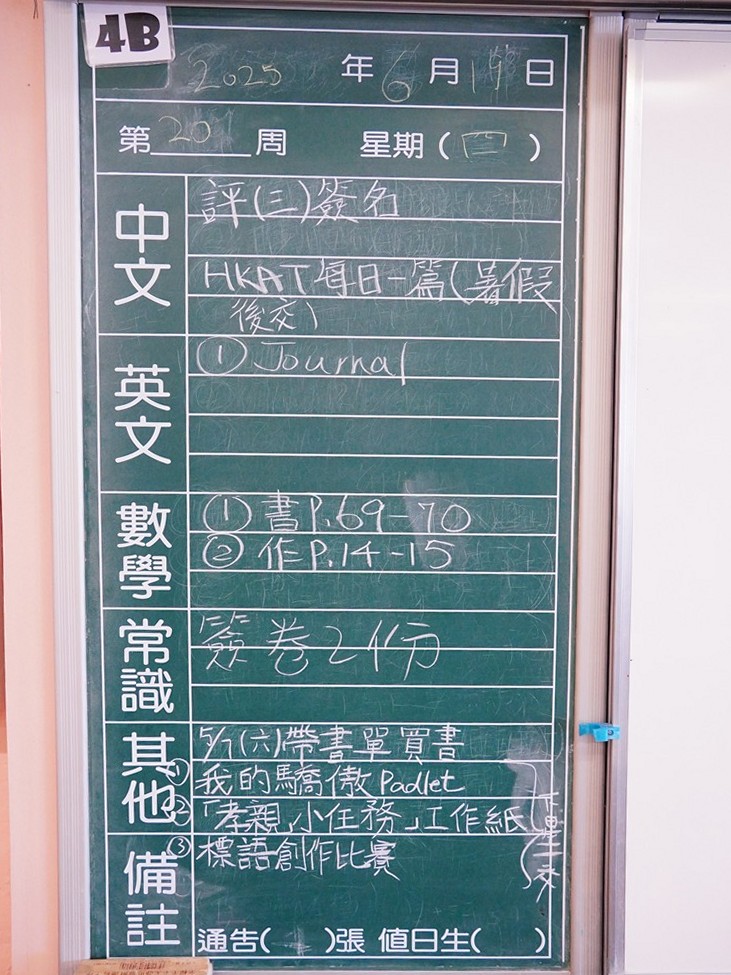 4B
2025年6月19日
第20周 星期(四)
中文
評(三)簽名
HKAT每日一篇(暑假
後交)
英文
① Journal
數學
① 書P.69-70
② 作P.14-15
常識
簽卷2份
其他
5/7(六)帶書單買書
① 我的驕傲Padlet
② 「孝親」小任務」工作紙
下星二交
備註
③ 標語創作比賽
通告( )張 值日生( )